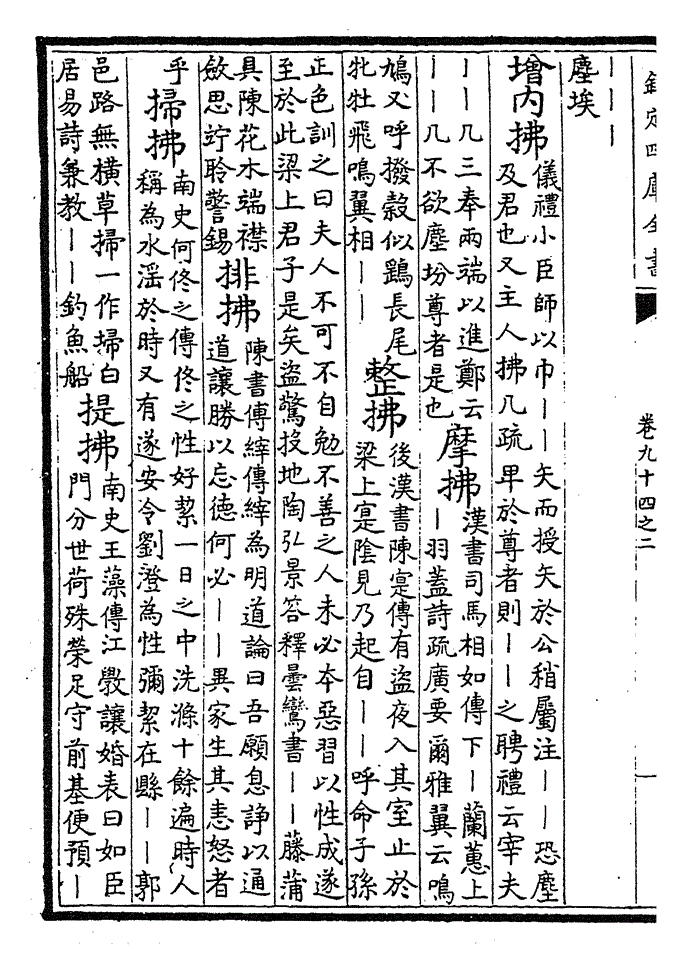 欽定四庫全書
卷九十四之二
一
｜｜｜
塵埃
增内拂
儀禮小臣師以巾｜｜矢而授矢於公稍屬注｜｜恐塵
及君也又主人拂几疏卑於尊者則｜｜之聘禮云宰夫
｜｜几三奉兩端以進鄭云
｜｜几不欲塵坋尊者是也
摩拂
漢書司馬相如傳下｜蘭蕙上
｜羽蓋詩疏廣要爾雅翼云鳴
鳩又呼撥穀似鷂長尾
牝牡飛鳴翼相｜｜
整拂
後漢書陳寔傳有盜夜入其室止於
梁上寔陰見乃起自｜｜呼命子孫
正色訓之曰夫人不可不自勉不善之人未必本惡習以性成遂
至於此梁上君子是矣盜驚投地陶弘景答釋曇鸞書｜｜藤蒲
具陳花水端襟
斂思竚聆警錫
排拂
陳書傅縡傳縡為明道論曰吾願息諍以通
道讓勝以忘德何必｜｜異家生其恚怒者
乎
掃拂
南史何佟之傳佟之性好絜一日之中洗滌十餘遍時人
稱為水淫於時又有遂安令劉澄為性彌絜在縣｜｜郭
邑路無橫草掃一作埽白
居易詩兼教｜｜釣魚船
提拂
南史王藻傳江斅讓婚表曰如臣
門分世荷殊榮足守前基便預｜